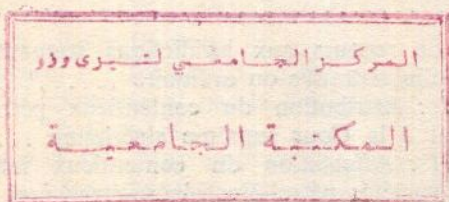 المركز الجامعي لتيزى وزو
المكتبة الجامعيـــة